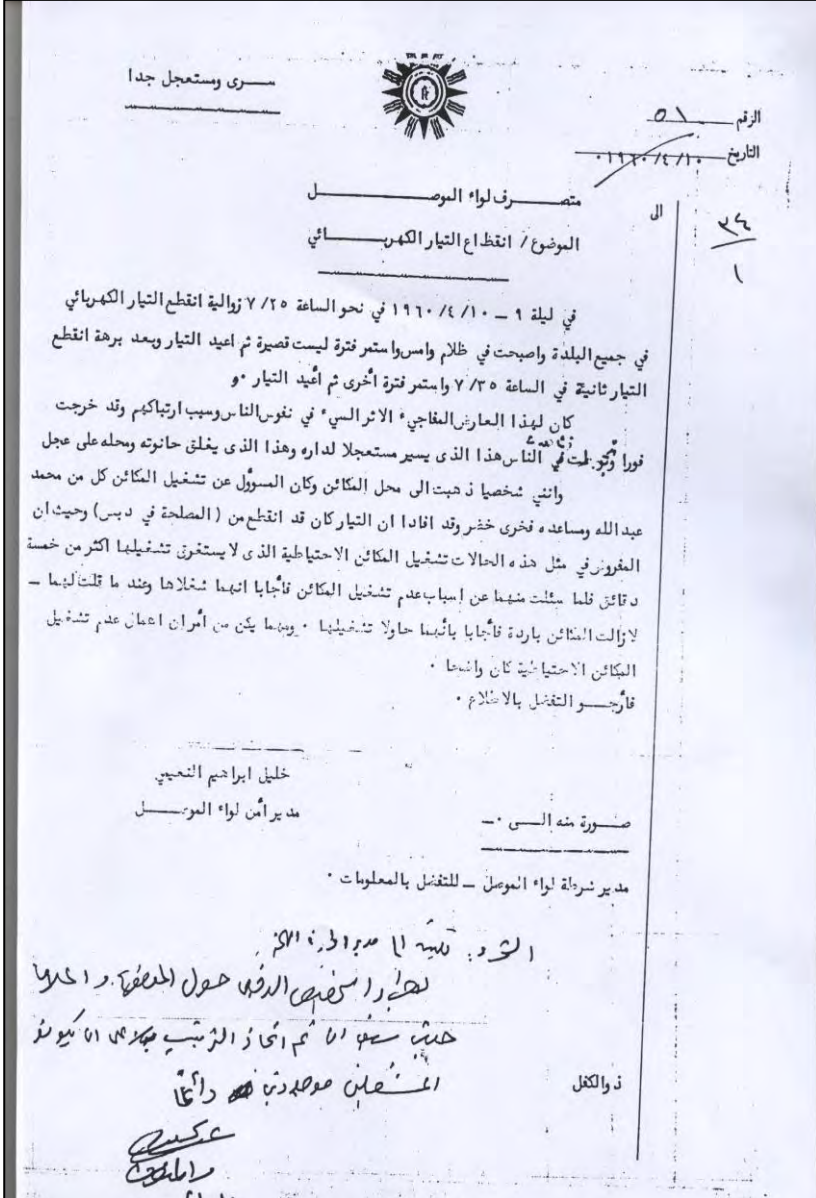 سرى ومستعجل جدا
الرقم ٥١
التاريخ ١٩٦٠/٤/١٠
٣٤
١
الى
متصرف لواء الموصل
الموضوع / انقظاع التيار الكهربائي
في ليلة ٩ – ١٩٦٠/٤/١٠ في نحو الساعة ٧/٢٥ زوالية انقطع التيار الكهربائي
في جميع البلدة واصبحت في ظلام وامس واستمر فترة ليست قصيرة ثم اعيد التيار وبعد برهة انقطع
التيار ثانية في الساعة ٧/٣٥ واستمر فترة أخرى ثم أعيد التيار ٠و
كان لهذا العارض المفاجيء الاثر السيء في نفوس الناس وسبب ارتباكهم وقد خرجت
فورا وتجولت في الناس هذا الذى يسير مستعجلا لداره وهذا الذى يغلق حانوته ومحله على عجل
وانني شخصيا ذهبت الى محل المكائن وكان المسوؤل عن تشغيل المكائن كل من محمد
عبد الله ومساعده فخرى خضر وقد افادا ان التيار كان قد انقطع من ( المصلحة في دبس) وحيث ان
المفروض في مثل هذه الحالات تشغيل المكائن الاحتياطية الذى لا يستغرق تشغيلها اكثر من خمسة
دقائق فلما سئلت منهما عن اسباب عدم تشغيل المكائن فأجابا انهما شغلاها وعند ما قلت لهما –
لازالت المكائن باردة فأجابا بأنهما حاولا تشغيلها ٠ ومهما يكن من أمر ان اعمال عدم تشغيل
المكائن الاحتياطية كان واضحا ٠
فأرجو التفضل بالاطلاع ٠
خليل ابراهيم النعيمي
مدير أمن لواء الموصل
صورة منه الى ٠–
مدير شرطة لواء الموصل – للتفضل بالمعلومات ٠
حول
ثم اتخاذ
دائماً
ذوالكفل